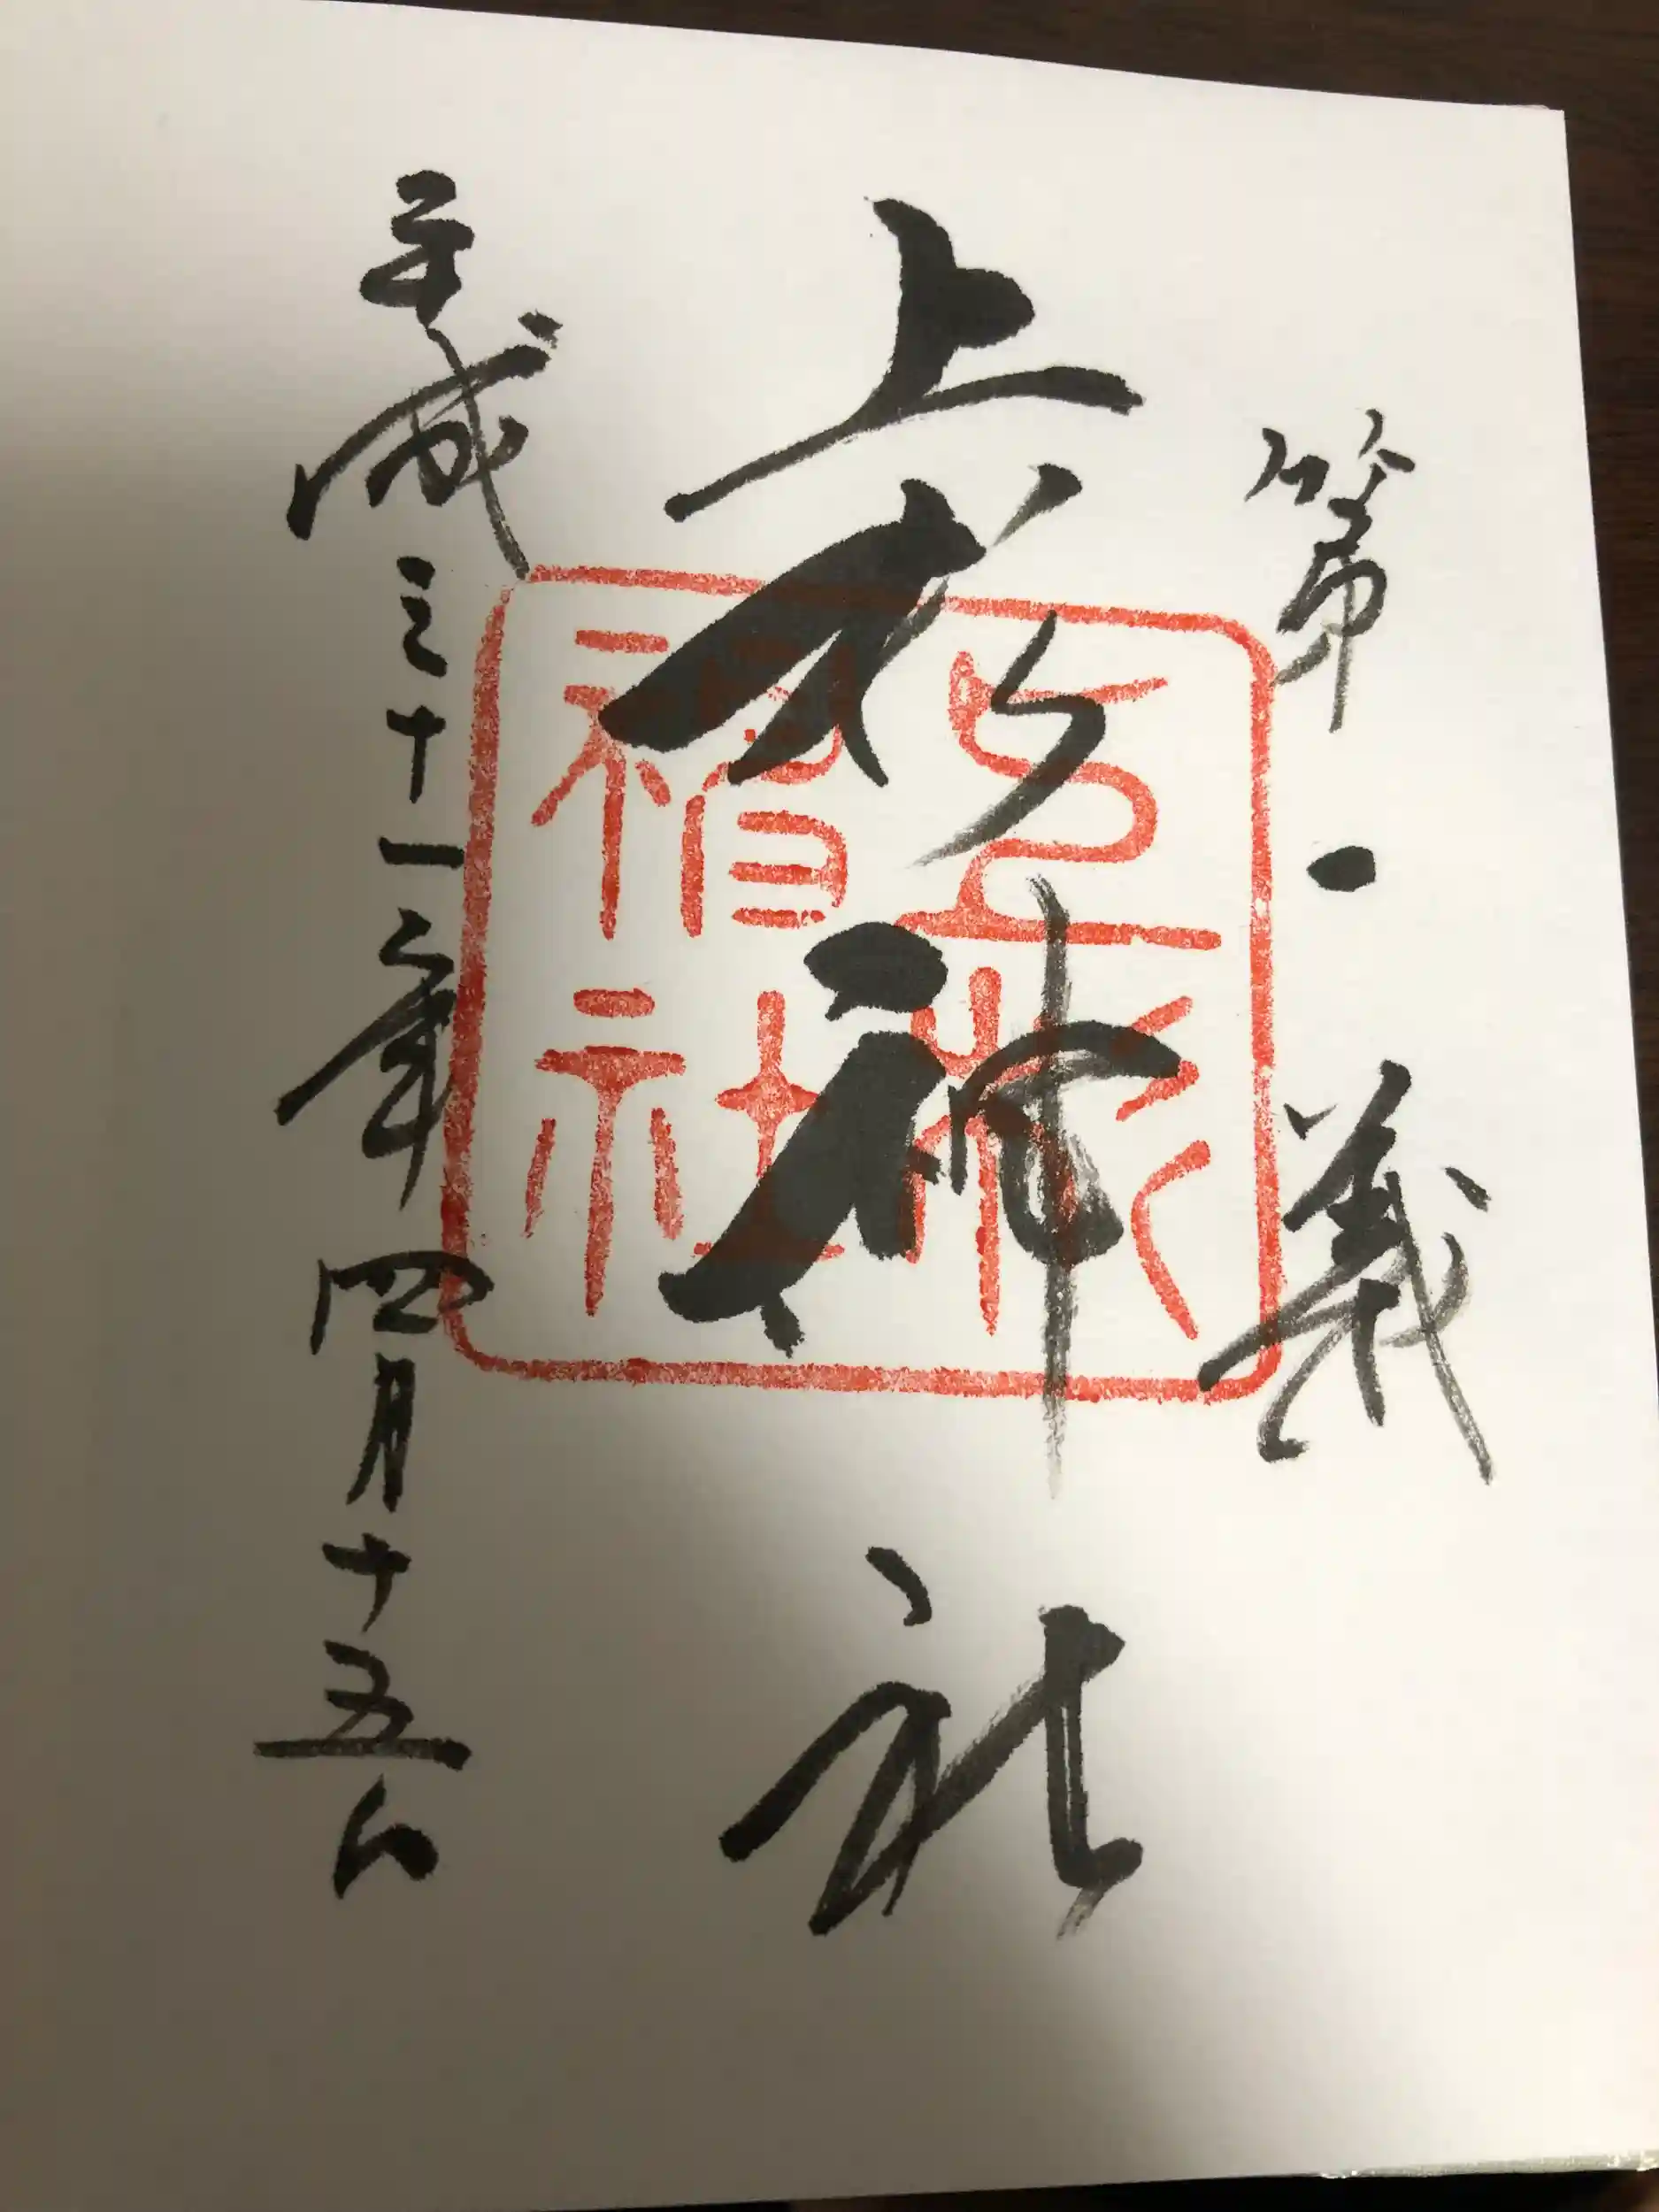 第一義
上杉神社
上杉神社
平成三十一年四月十五日